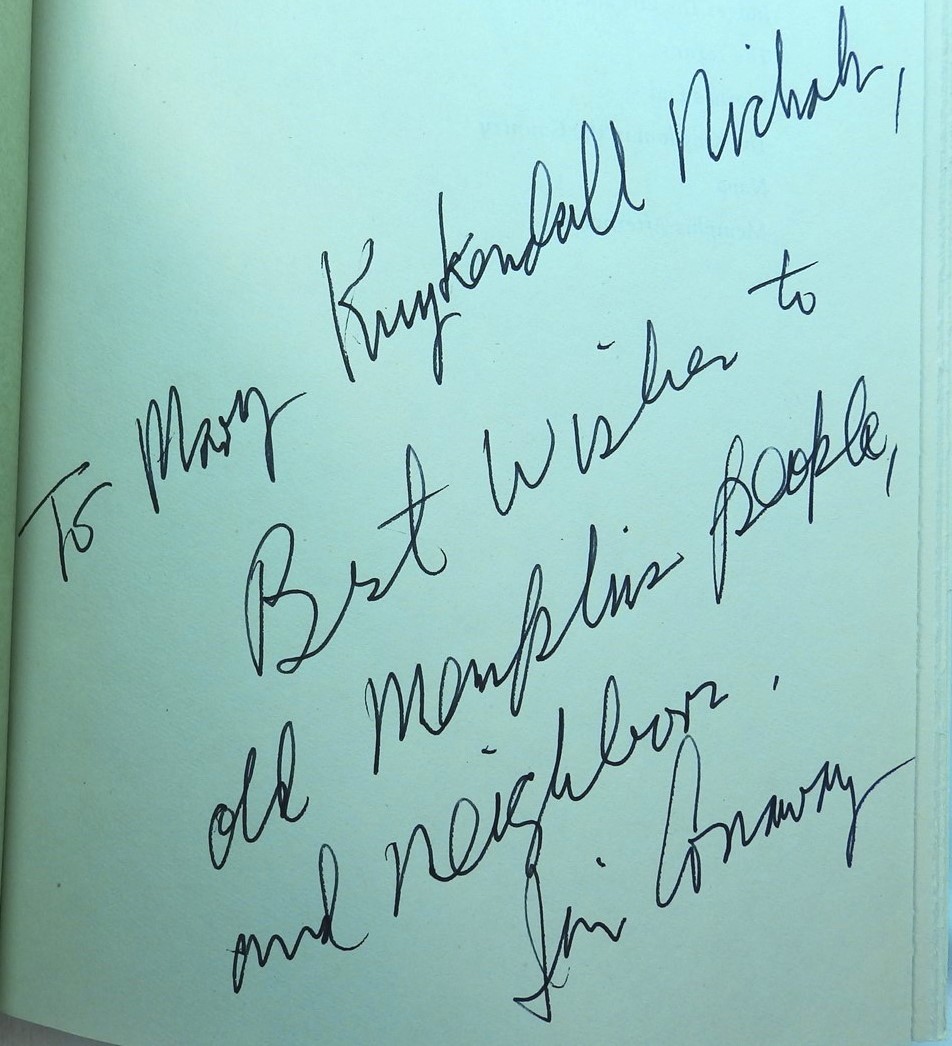 To Mary Kuykendall Nichols,
Best Wishes to
old Memphis people,
and neighbors.
Jim Conaway